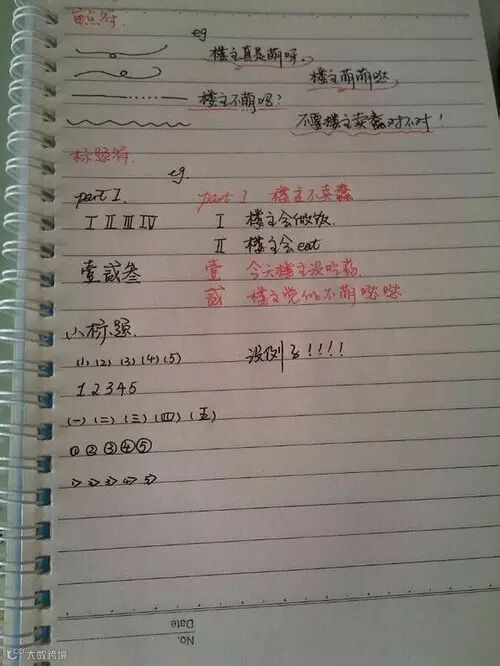 重点符
eg
楼主真是萌呀。
楼主萌萌哒
楼主不萌吗？
不要楼主卖蠢对不对！
标题符
eg.
part I. part I 楼主不卖蠢
I II III IV I 楼主会做饭.
II 楼主会eat
壹贰叁 壹 今天楼主没吃药
贰 楼主觉的不萌哒哒
小标题
(1) (2) (3) (4) (5) 没例了！！！！
1 2 3 4 5
(一) (二) (三) (四) (五)
① ② ③ ④ ⑤
1> 2> 3> 4> 5>
No.
Date
大数跨境